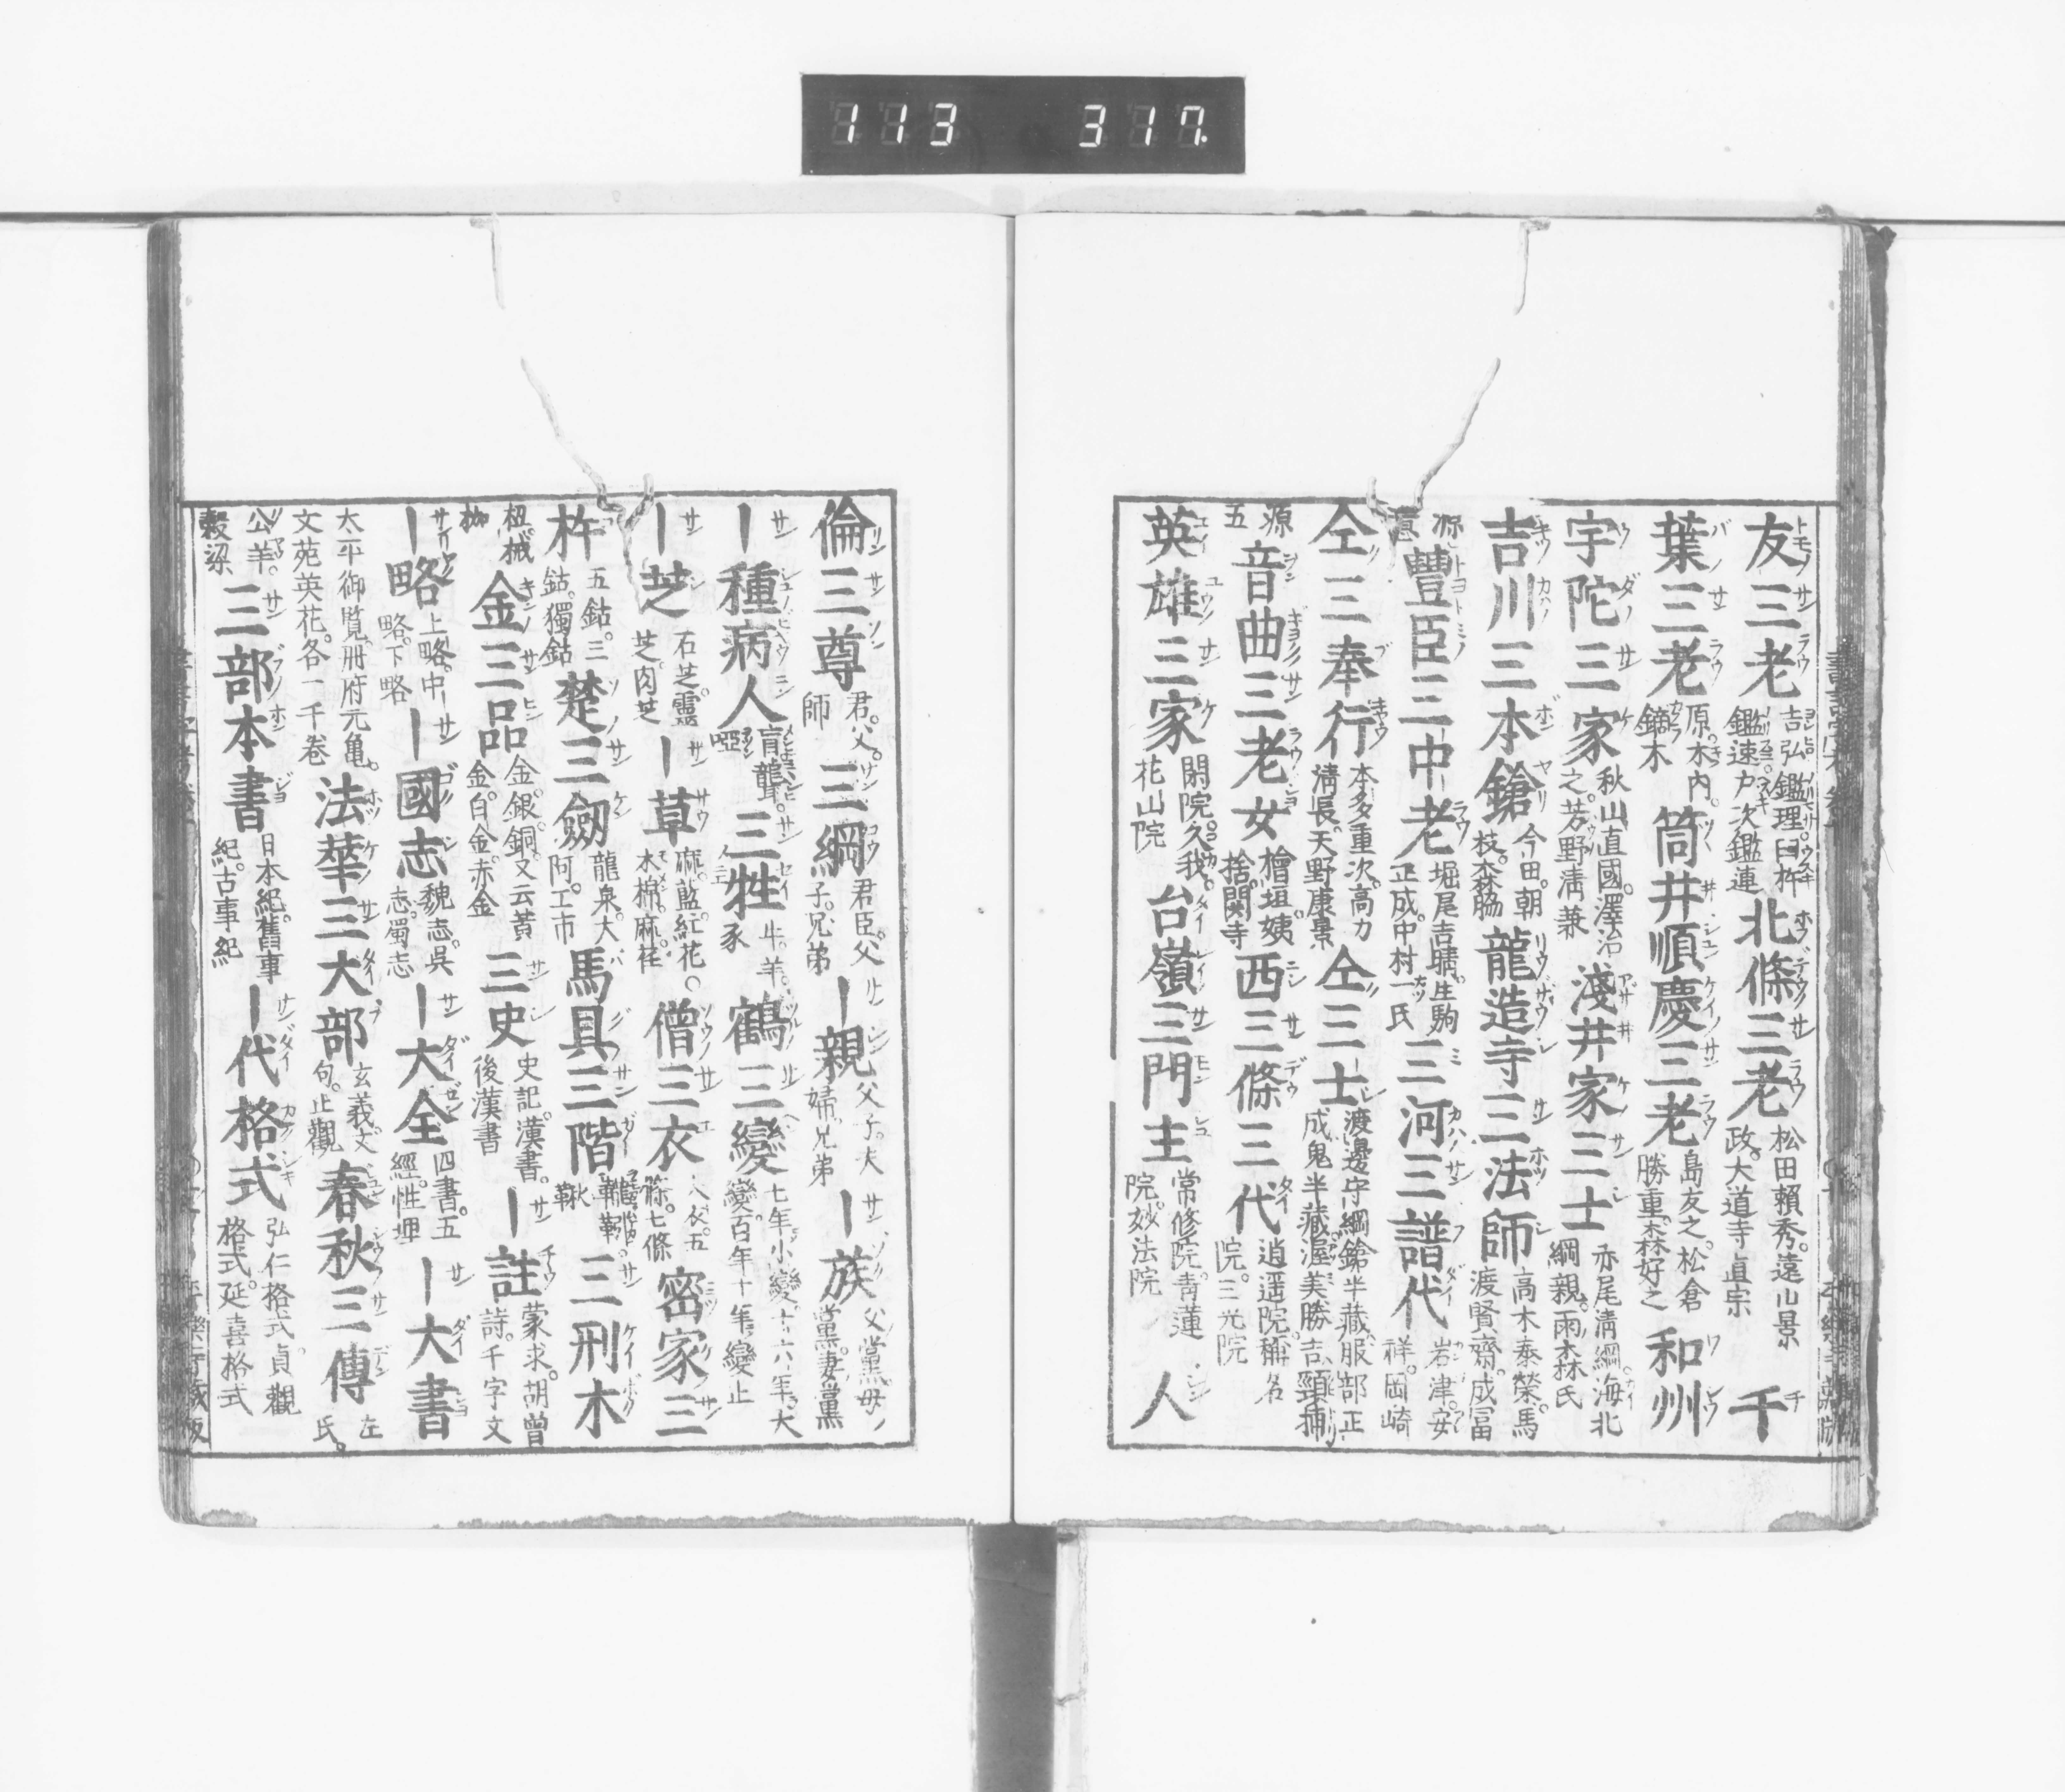 113 317.
友三老 吉弘鑑理臼杵鑑速戸次鑑連 北條三老 松田賴秀。遠山景政。大道寺直宗 千
葉三老 原。木内。鏑木 筒井順慶三老 島友之。松倉勝重。森好之 和州
宇陀三家 秋山直國。澤 之。芳野淸兼 淺井家三士 赤尾淸綱。海北綱親。雨森氏
吉川三本鎗 今田。朝枝。森脇 龍造寺三法師 高木泰榮。馬渡賢齋。成冨
豐臣三中老 堀尾吉晴。生駒正成。中村一氏 三河三譜代 岩津。安祥。岡崎
仝三奉行 本多重次。高力淸長。天野康景 仝三士 渡邊守綱鎗半藏。服部正成鬼半藏渥美勝吉頸捕
源五 音曲三老女 檜垣。姨捨。関寺 西三條三代 逍遥院。稱名院。三光院
英雄三家 閑院。久我。花山院 台嶺三門主 常修院。靑蓮院。妙法院 人
倫三尊 君。父。師 三綱 君臣。父子。兄弟 ー親 父子。夫婦。兄弟 ー族 父黨。母黨。妻黨
ー種病人 盲。聾。啞 三牲 牛。羊。豕 鶴三變 七年。小變。十六年。大變百年十年。變止
ー芝 石芝。靈芝。肉芝 ー草 麻。藍。紅花。木棉。麻。 僧三衣 五條。七條 密家三
杵 五鈷。三鈷。獨鈷 楚三劔 龍泉。大阿。工市 馬具三階 鞦 三刑木
杻。械 枷 金三品 金。銀。銅。又云黃金。白金。赤金 三史 史記。漢書。後漢書 ー註 蒙求。胡曾詩。千字文
ー略 上略。中略。下略 ー國志 魏志。呉志。蜀志 ー大全 四書。五經。性理 ー大書
太平御覧。冊府元亀。文苑英花。各一千巻 法華三大部 玄義。文句。止觀 春秋三傳 左氏。
公羊。穀梁 三部本書 日本紀。舊事紀。古事紀 ー代格式 弘仁格式。貞觀格式。延喜格式